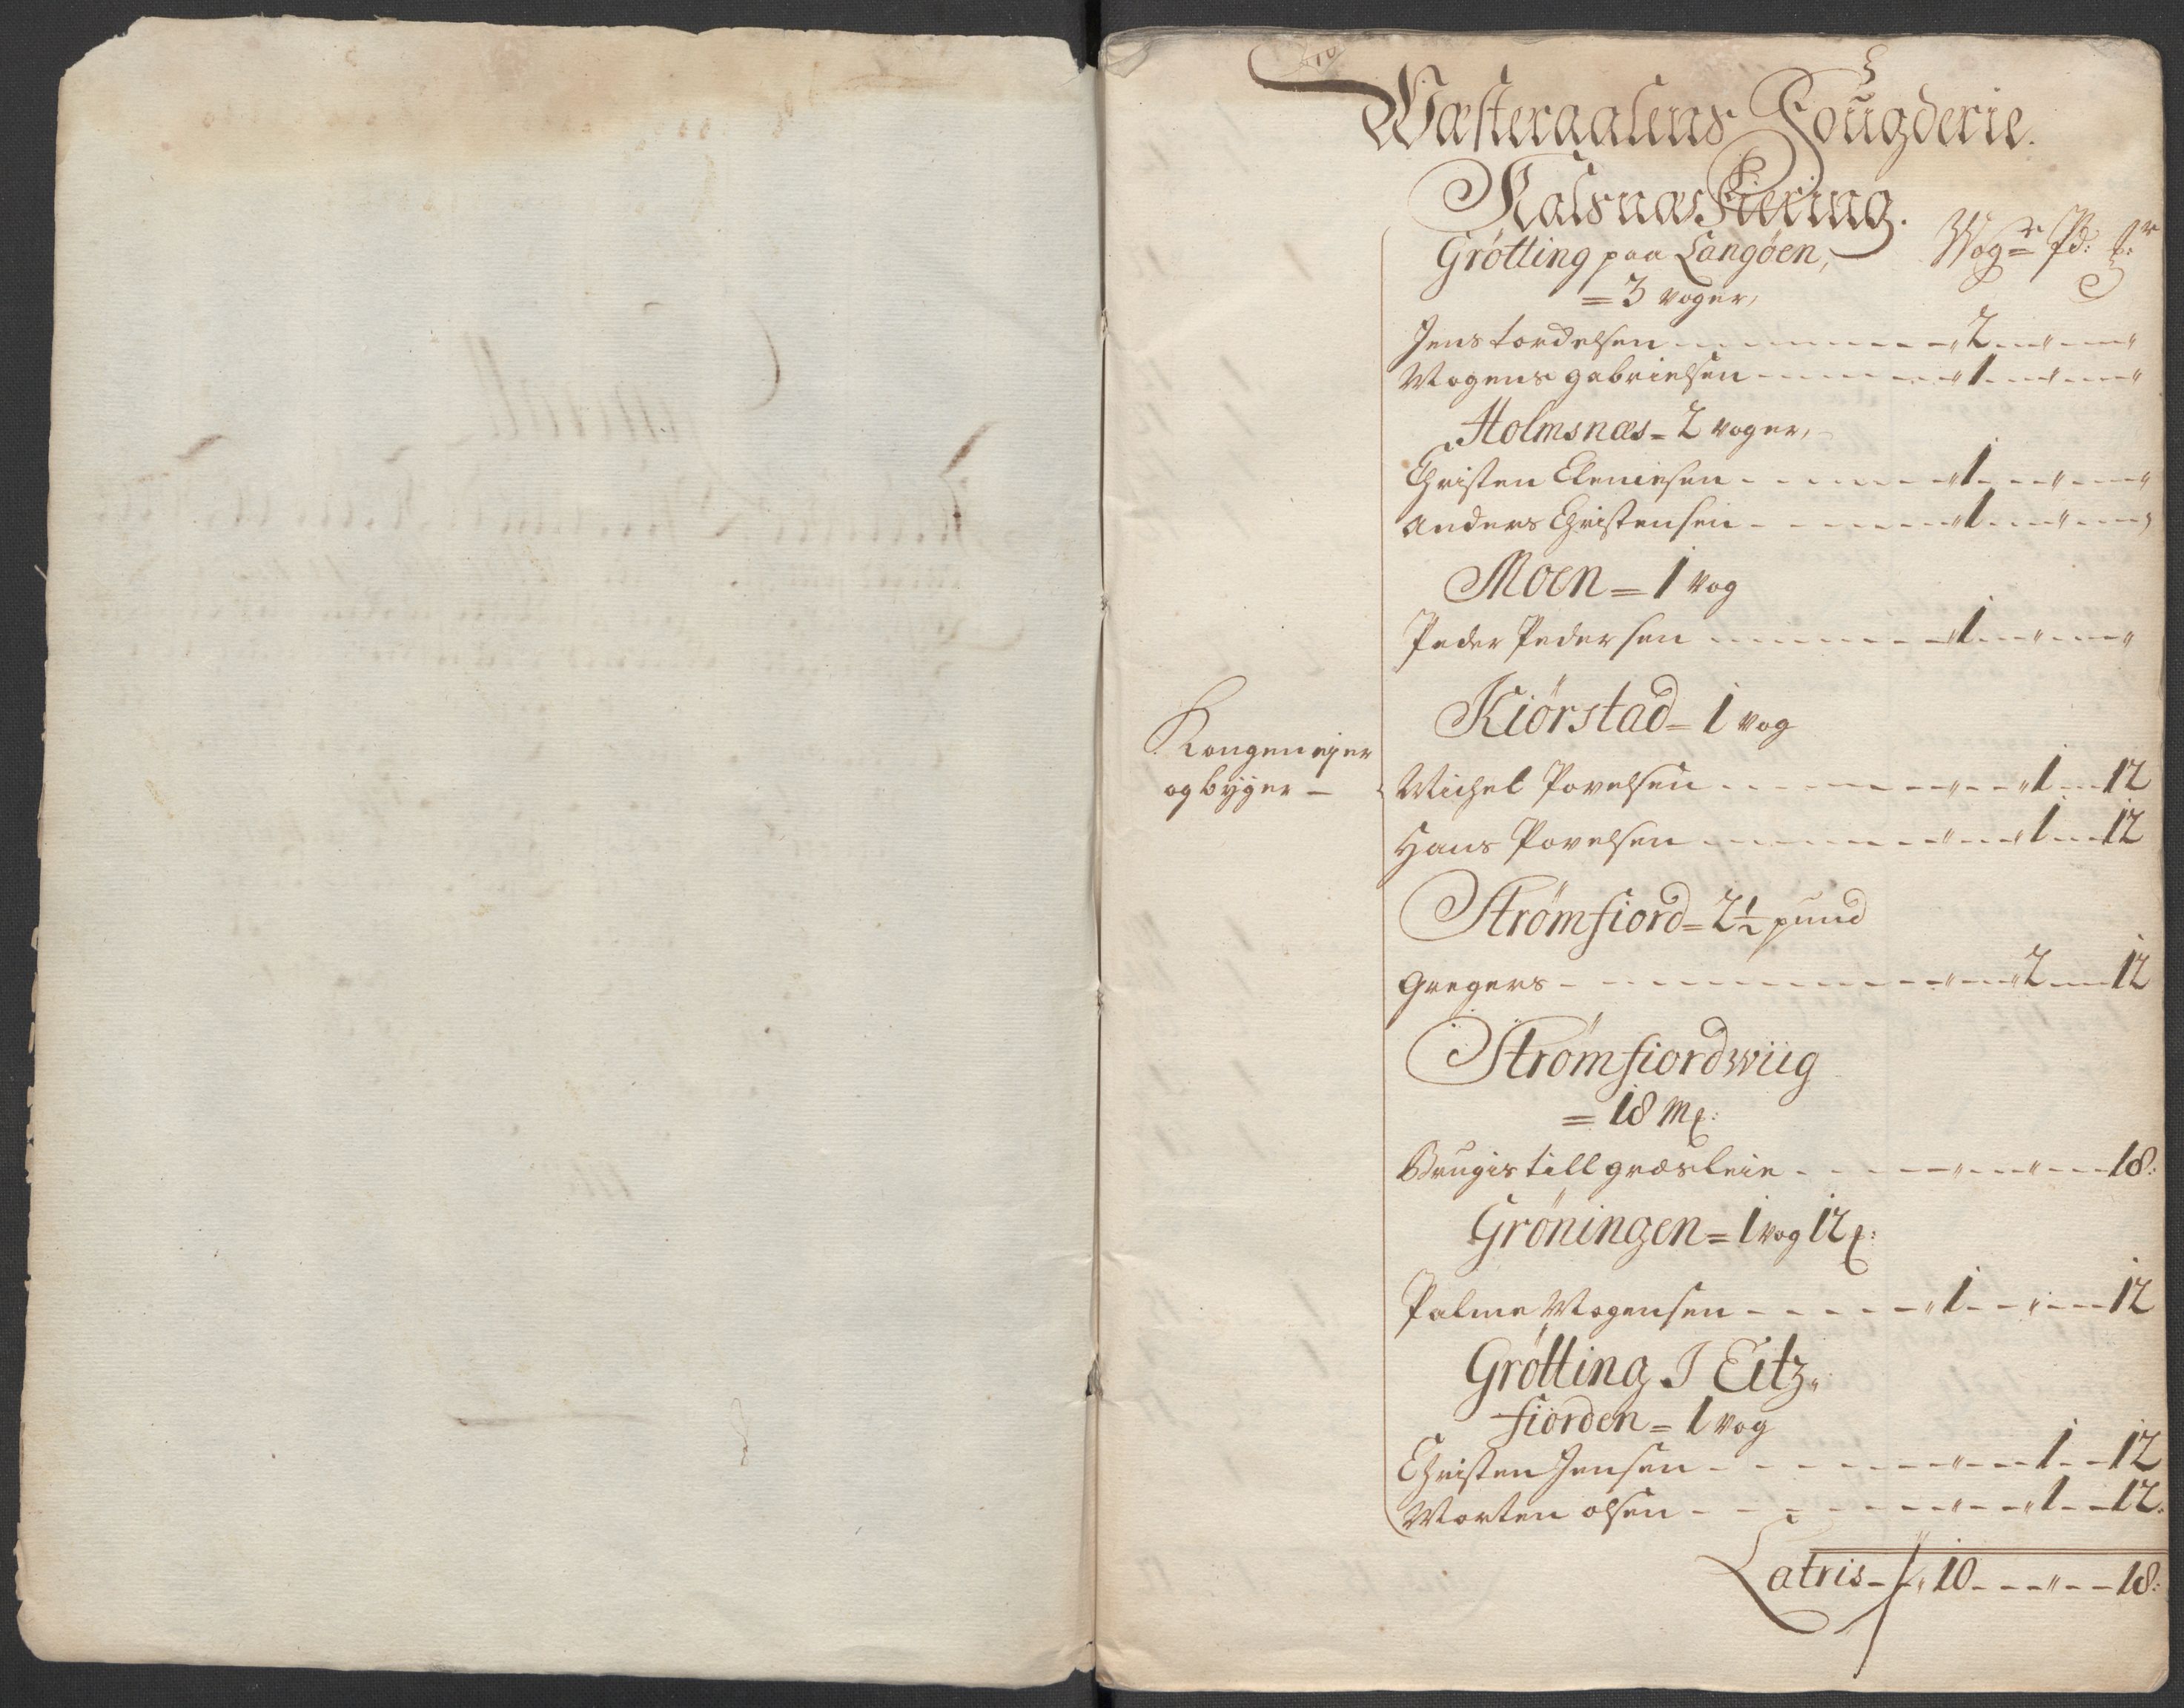 Wæsteraalens Fougderie.
Kalsnæs Fiering.
Grötting paa Langöen, Wog:r Pd: f:r
= 3 voger,
Jens tordelsen - - - „ 2 - „ - „
Mogens gabrielsen - - - „ 1 - „ - „
Holmsnæs = 2 voger,
Christen - - - „ 1 - „ - „
Anders Christensen - - - „ 1 - „ - „
Moen = 1 vog
Peder Pedersen - - - „ 1 - „ - „
Kiörstad = 1 vog
Kongen ejer
og byger -
Michel Povelsen - - - „ - „ 1 - 12
Hans Povelsen - - - „ - „ 1 - 12
Strömfiord = 2½ pund
Gregers - - - „ - „ 2 - 12
Strömfiordwiig
= 18 Mf:
Brugis till græsleie - - - „ - „ - 18:
Gröningen = 1 vog 12 f:
Palme Mogensen - - - „ 1 - „ - 12
Grötting J Eitz„
fiorden = 1 vog
Christen Jensen - - - „ - 1 - 12
Morten olsen - - - „ - „ 1 - 12:
Latris - „ 10 - - „ - - 18: